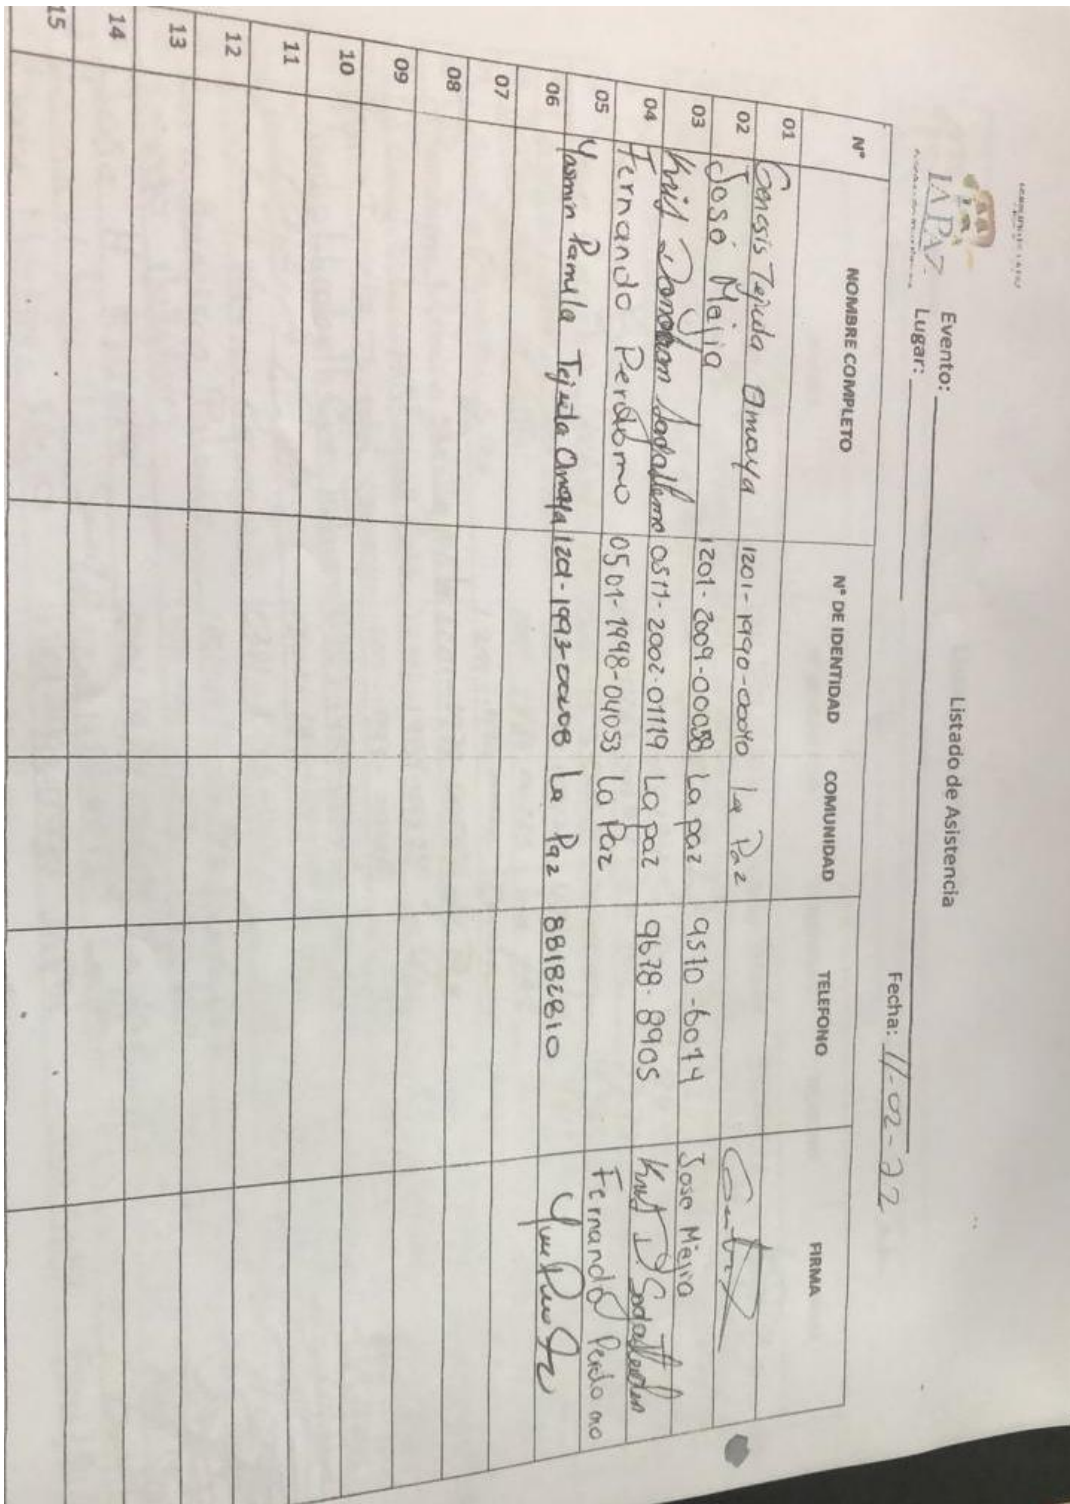 LA PAZ
Listado de Asistencia
Evento:
Lugar: Fecha: 11-02-22
N° NOMBRE COMPLETO N° DE IDENTIDAD COMUNIDAD TELEFONO FIRMA
01 Genesis Tejeda Amaya 1201-1990-00040 La Paz
02 José Mejia 1201-2009-00058 La paz 9510-6014 Jose Mejia
03 0511-2002-01119 La paz 9678-8905
04 Fernando Perdomo 0501-1998-04053 La Paz Fernando Perdomo
05 Yasmin Pamela Tejeda Amaya La Paz 88182810
06
07
08
09
10
11
12
13
14
15